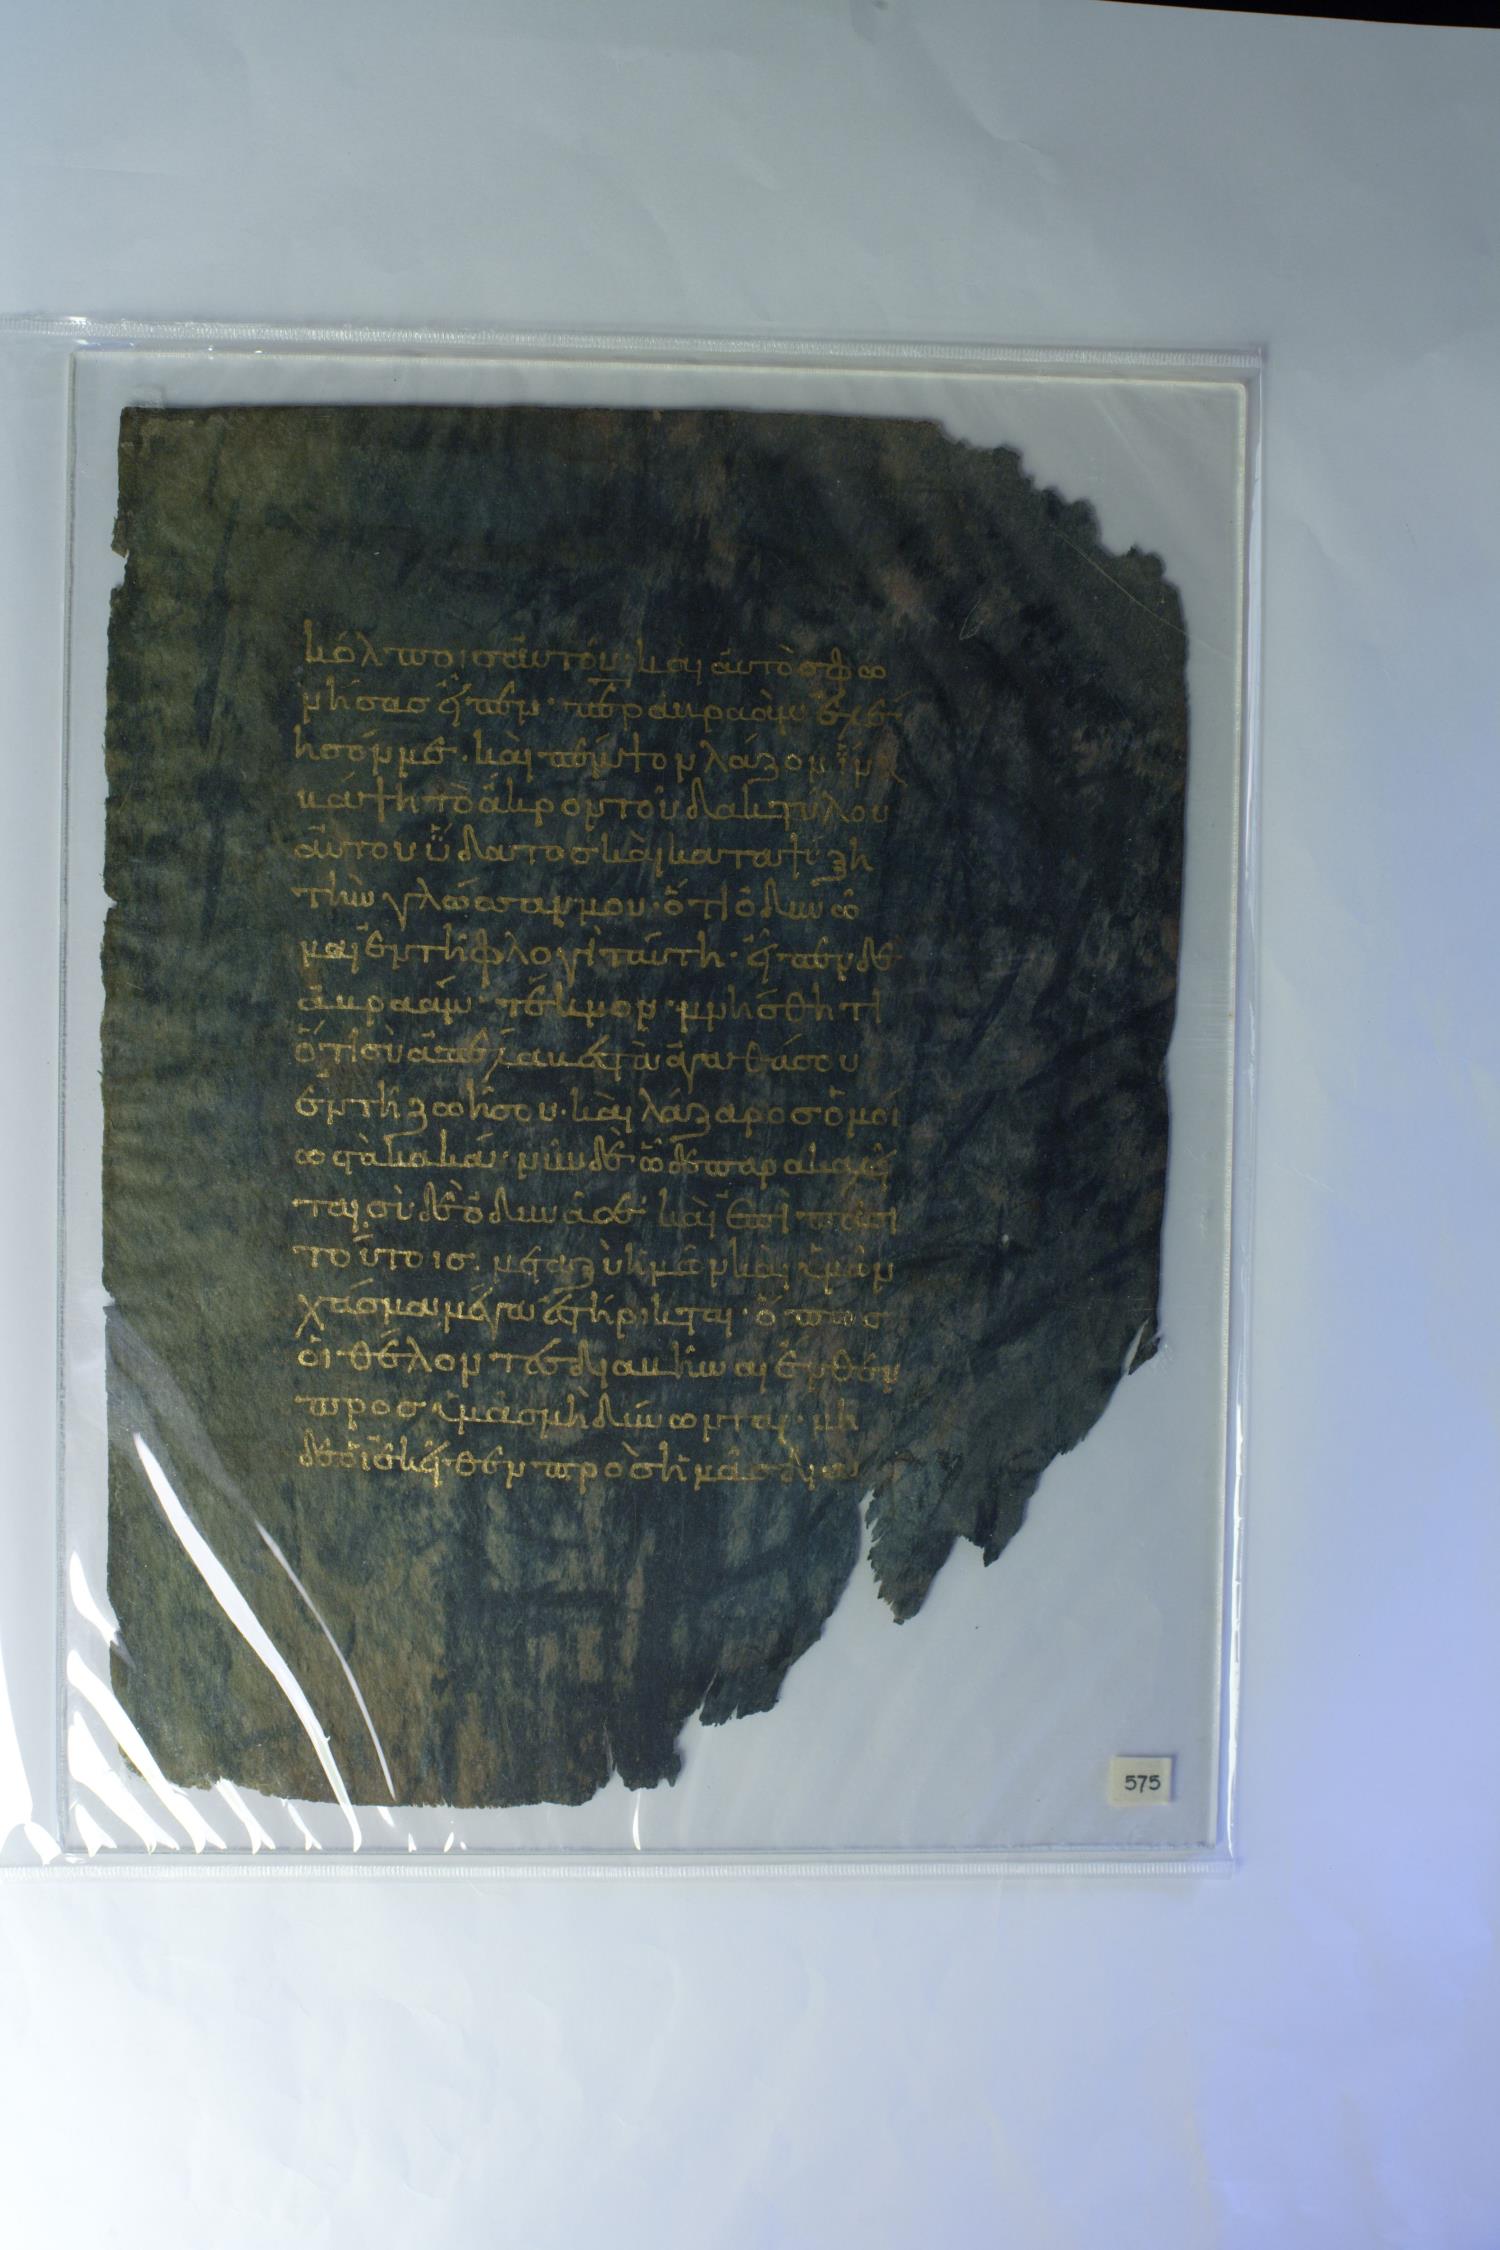 κόλποισ ἀυτοῦ· καὶ ἀυτὸσ φω
νήσασ εἶπεν· περ ἀβραὰμ ἐλέ
ησόν με· καὶ πέμψον λάζαρον ἵνα
βάψη τὸ ἄκρον τοῦ δακτύλου
ἀυτου ὕδατοσ καὶ καταψύξη
τὴν γλῶσσαν μου· ὅτι ὀδυνῶ
μαι ἐν τῆ φλογὶ ταύτη· εἶπεν δὲ
ἀβραάμ· τέκνον· μνήσθητι
ὅτι σὺ ἀπέλαβες τὰ ἀγαθά σου
ἐν τῆ ζωῆ σου· καὶ λάζαροσ ὁμοί
ωσ τὰ κακά· νῦν δὲ ὧδε παρακαλεῖ
ται· σὺ δὲ ὀδυνᾶσαι· καὶ ἐπὶ πᾶσι
τούτοισ· μεταξὺ ἡμῶν καὶ ὑμῶν
χάσμα μέγα ἐστήρικται· ὅπωσ
οἱ θέλοντεσ διαβῆναι ἔνθεν
προσ ὑμᾶσ μὴ δύνωνται· μη
δὲ οἱ ἐκεῖθεν πρὸσ ἡμᾶσ δια
575